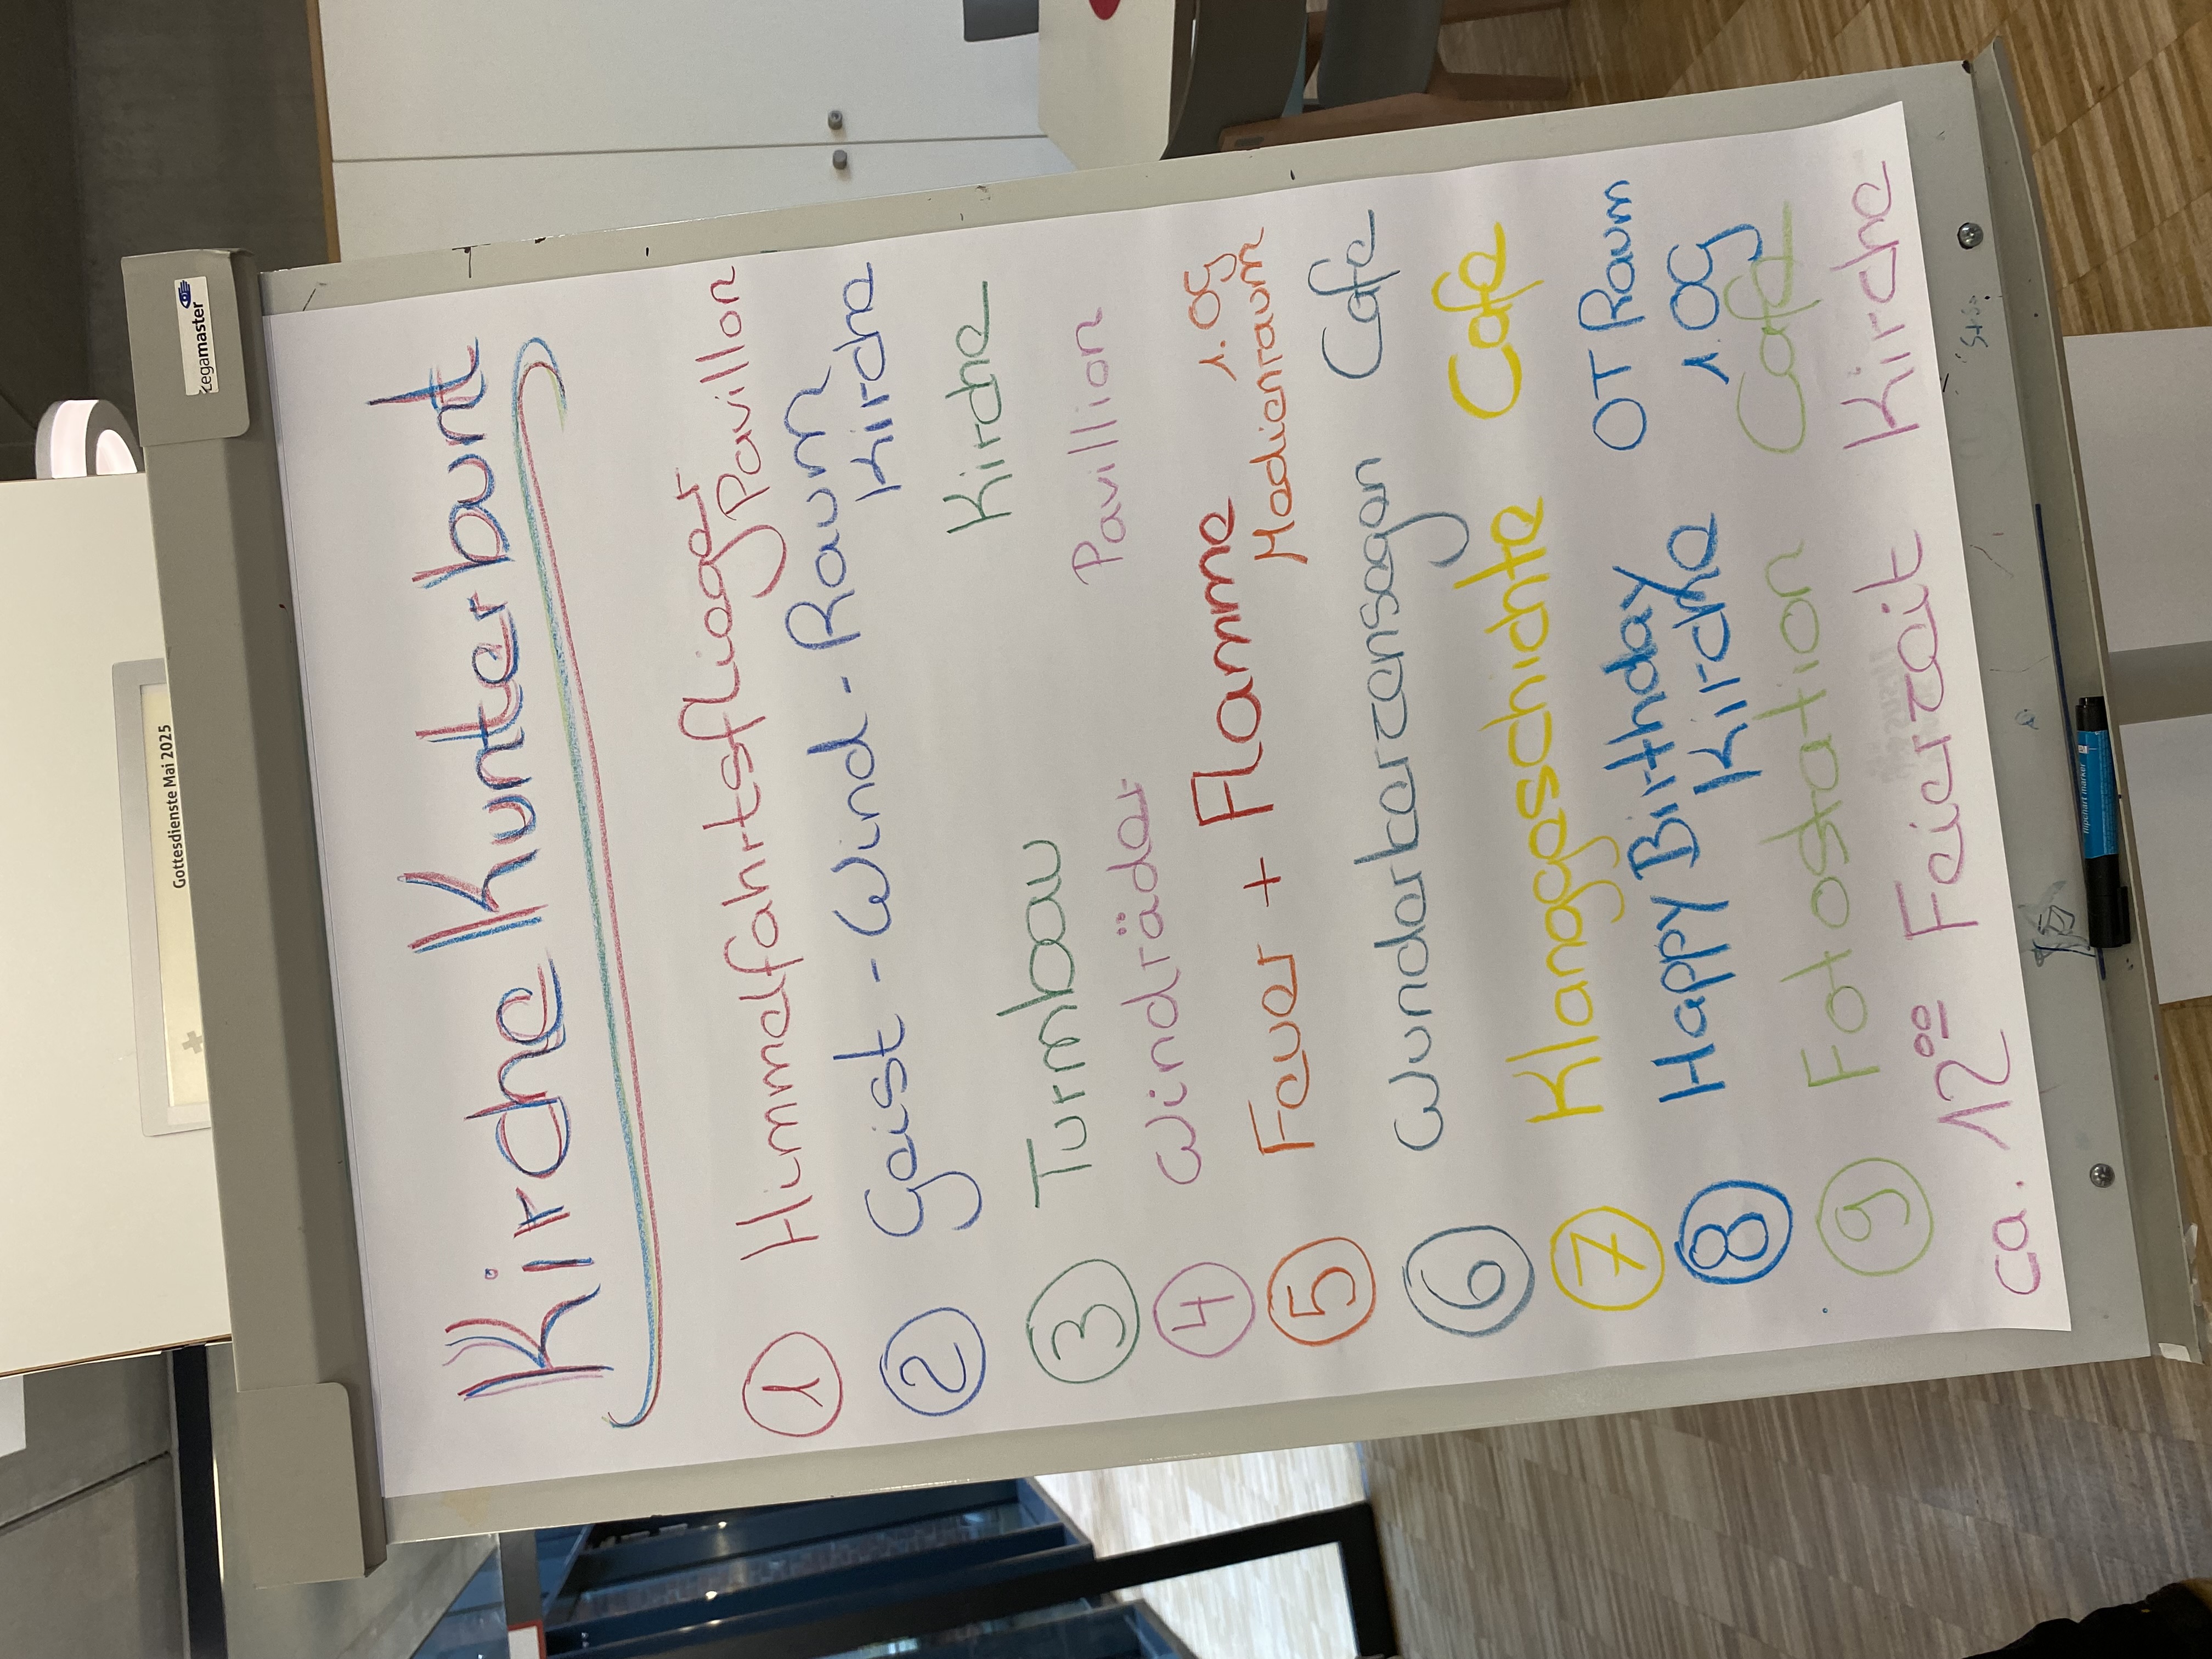 Legamaster
Gottesdienste Mai 2025
Kirche Kunterbunt
1 Himmelfahrtsflieger Pavillon
2 Geist - Wind - Raum Kirche
3 Turmbau Kirche
4 Windräder Pavillion
5 Feuer + Flamme 1.OG Medienraum
6 Wunderkerzensegen Cafe
7 Klanggeschichte Cafe
8 Happy Birthday Kirche OT Raum 1.OG
9 Fotostation Cafe
ca. 12⁰⁰ Feierzeit Kirche
flipchart marker